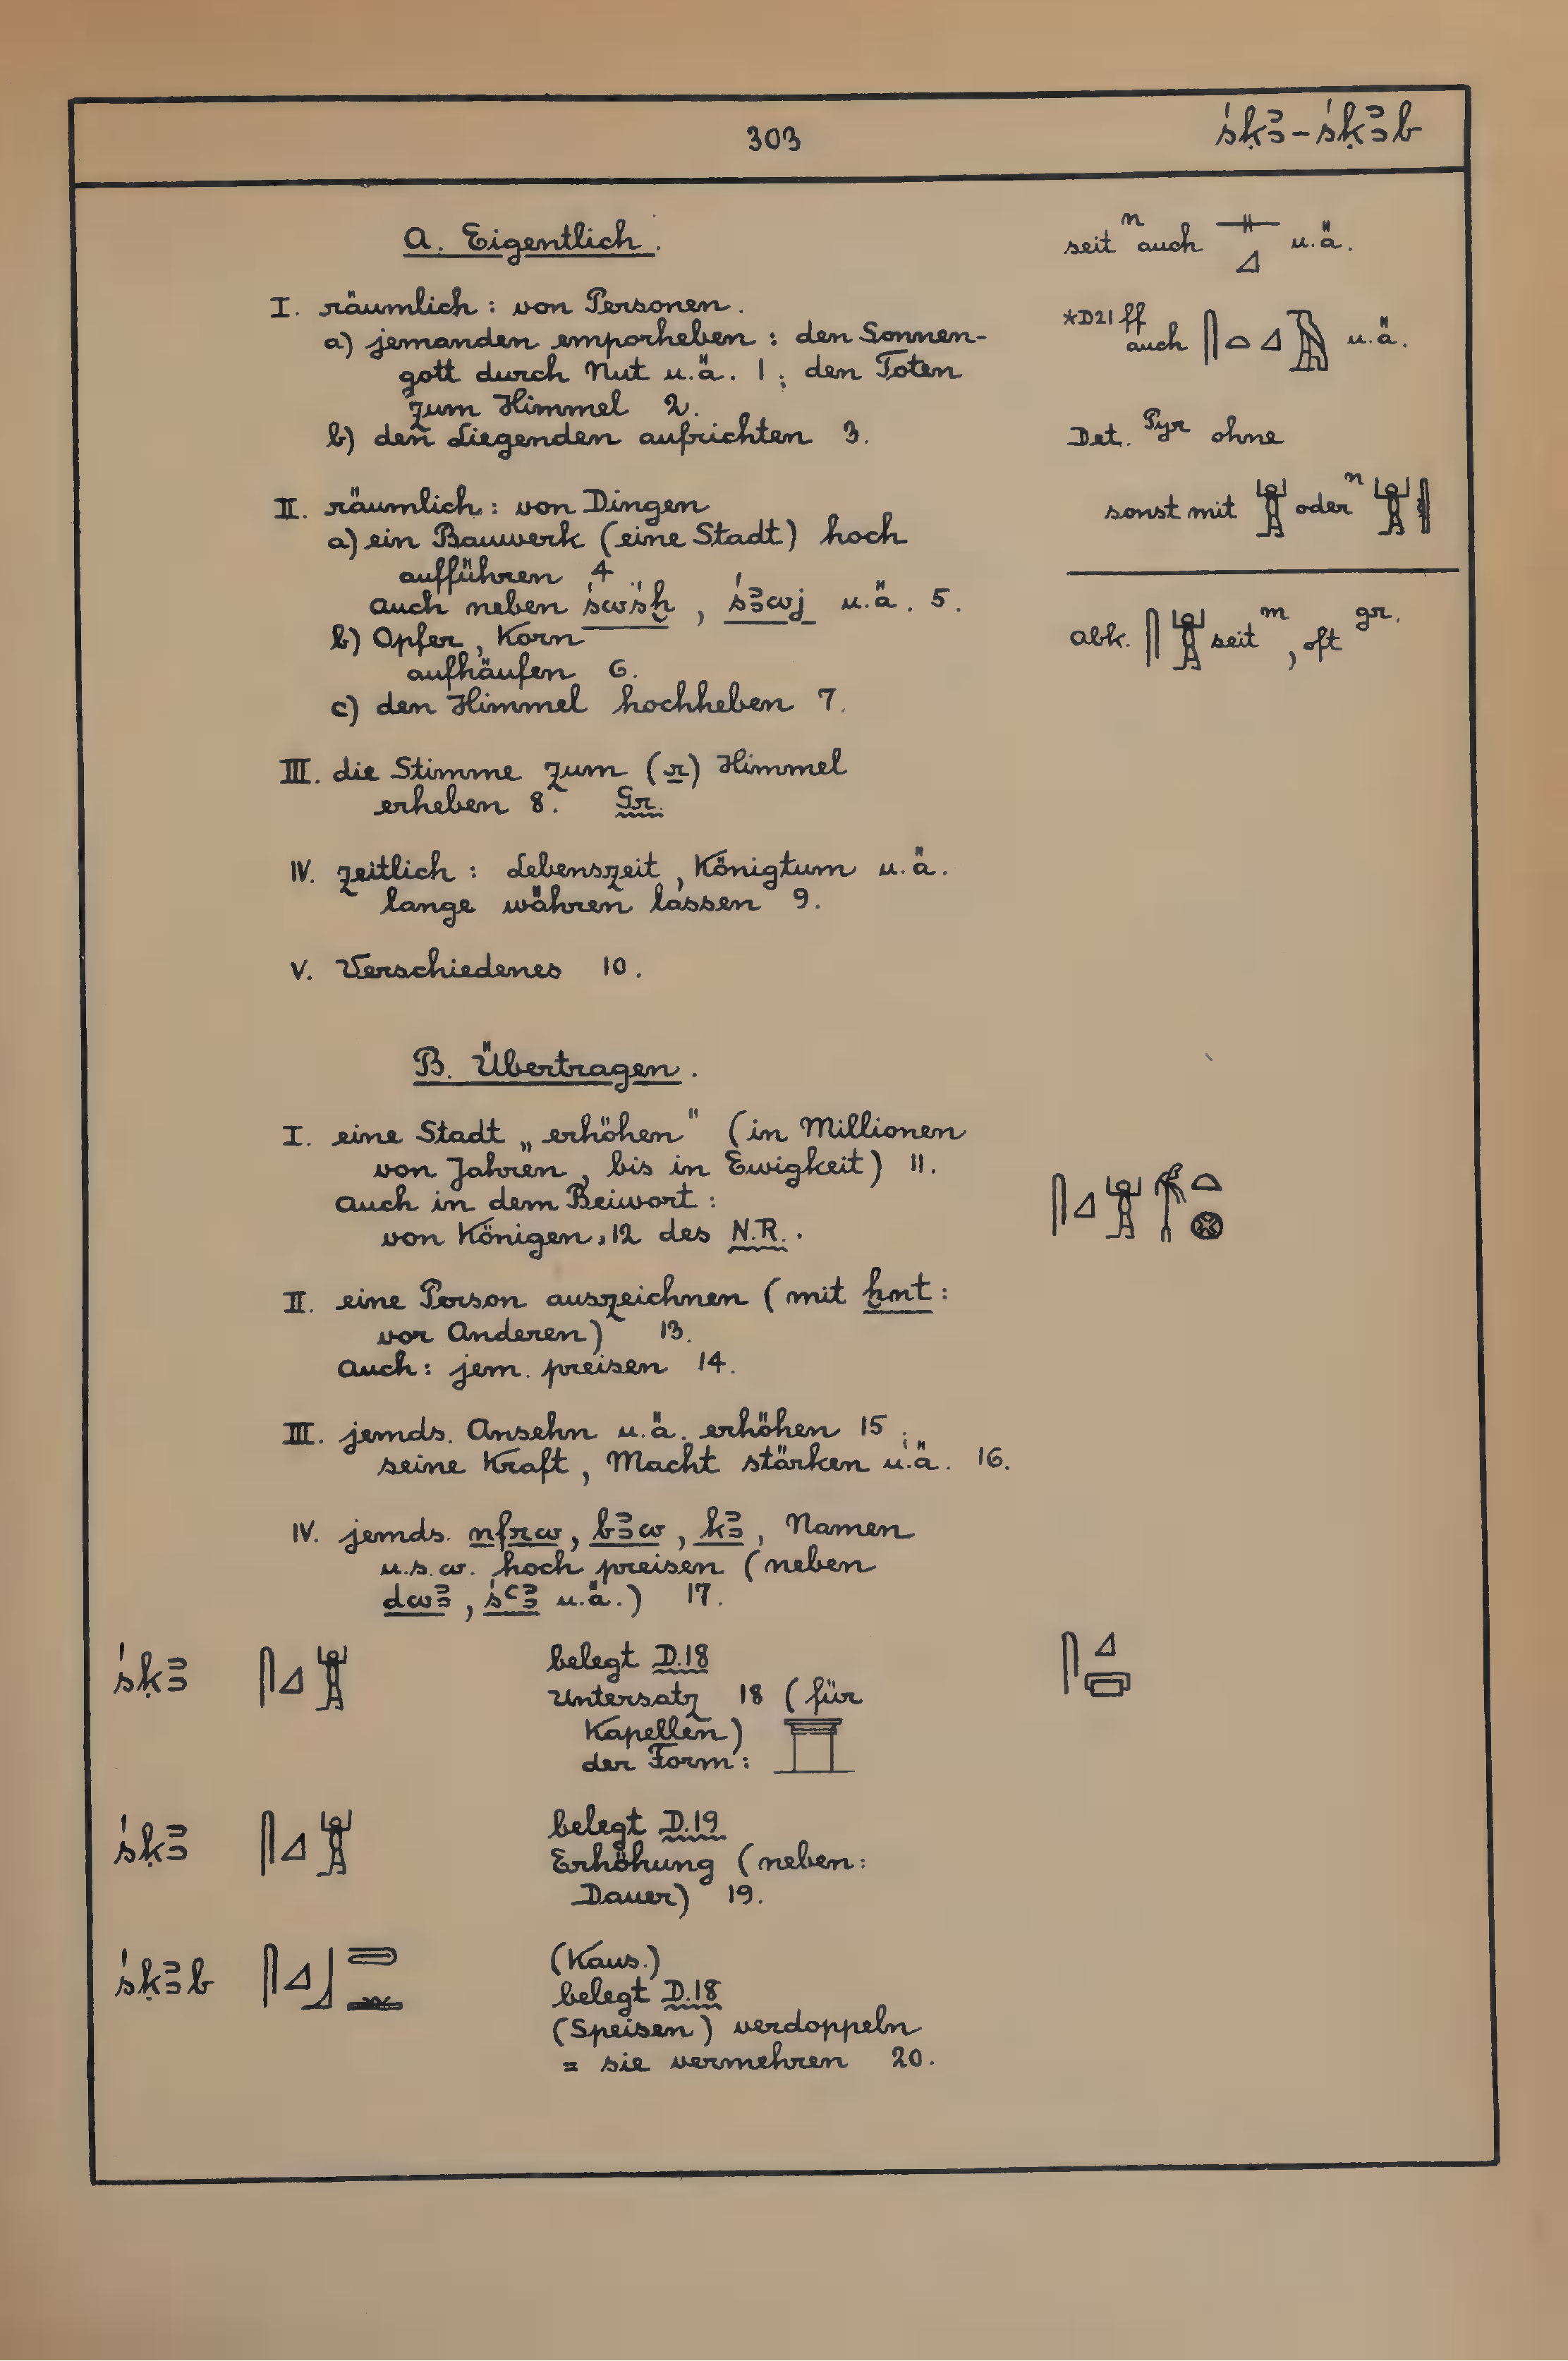 303
śḳꜣ - śḳꜣb
A. Eigentlich.
I. räumlich: von Personen.
a) jemanden emporheben: den Sonnen-
gott durch Nut u.ä. 1; den Toten
zum Himmel 2.
b) den Liegenden aufrichten 3.
II. räumlich: von Dingen
a) ein Bauwerk (eine Stadt) hoch
aufführen 4
auch neben śwśḫ, śꜣwj u.ä. 5.
b) Opfer, Korn
aufhäufen 6.
c) den Himmel hochheben 7.
III. die Stimme zum (r) Himmel
erheben 8. Gr.
IV. zeitlich: Lebenszeit, Königtum u.ä.
lange währen lassen 9.
V. Verschiedenes 10.
seit n auch 𓊃𓈎 u.ä.
*D21 ff
auch 𓋴𓏏𓈎 u.ä.
Det. Pyr ohne
sonst mit 𓀠 oder n 𓀠𓏛
abk. 𓋴𓀠 seit m, oft gr.
B. Übertragen.
I. eine Stadt „erhöhen" (in Millionen
von Jahren, bis in Ewigkeit) 11.
auch in dem Beiwort:
𓋴𓈎𓀠𓌀𓏏𓊖
von Königen, 12 des N.R..
II. eine Person auszeichnen (mit ḫnt:
vor Anderen) 13.
auch: jem. preisen 14.
III. jemds. Ansehn u.ä. erhöhen 15;
seine Kraft, Macht stärken u.ä. 16.
IV. jemds. nfrw, bꜣw, kꜣ, Namen
u.s.w. hoch preisen (neben
dwꜣ, śꜥꜣ u.ä.) 17.
śḳꜣ 𓋴𓈎𓀠 belegt D.18 𓋴𓈎
Untersatz 18 (für
Kapellen)
der Form:
śḳꜣ 𓋴𓈎𓀠 belegt D.19
Erhöhung (neben:
Dauer) 19.
śḳꜣb 𓋴𓈎𓃀 (Kaus.)
belegt D.18
(Speisen) verdoppeln
= sie vermehren 20.